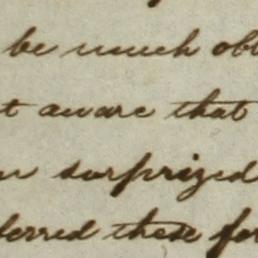 be much obl
t aware that
surprized
ferred these for